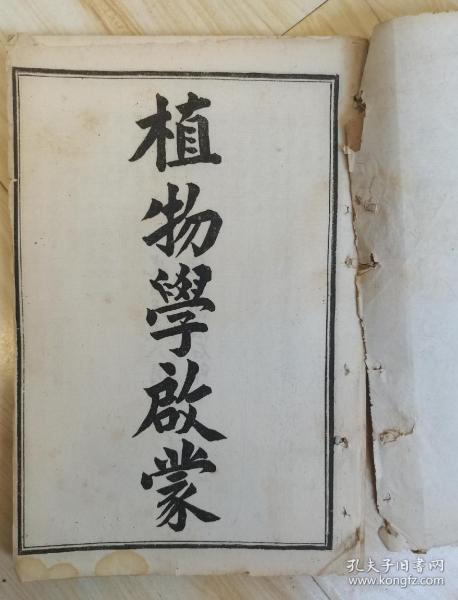 植物學啟蒙
孔夫子旧书网
www.kongfz.com